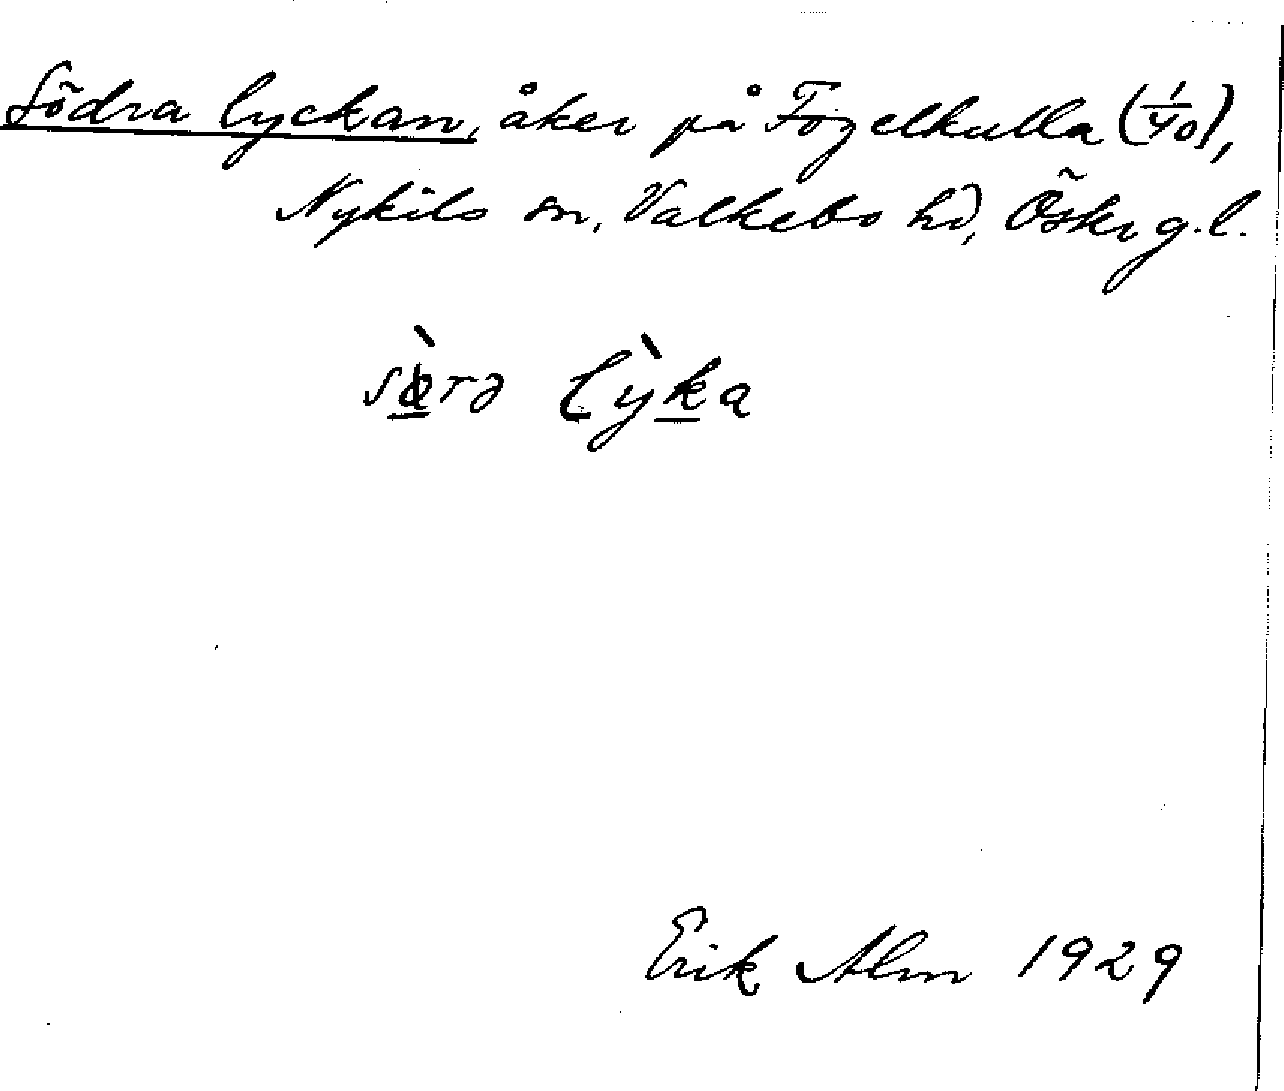 Södra lyckan, åker på Fogelkulla (1/40),
Nykils sn, Valkebo hd, Österg. l.
sœ̀rə lỳka
Erik Alm 1929